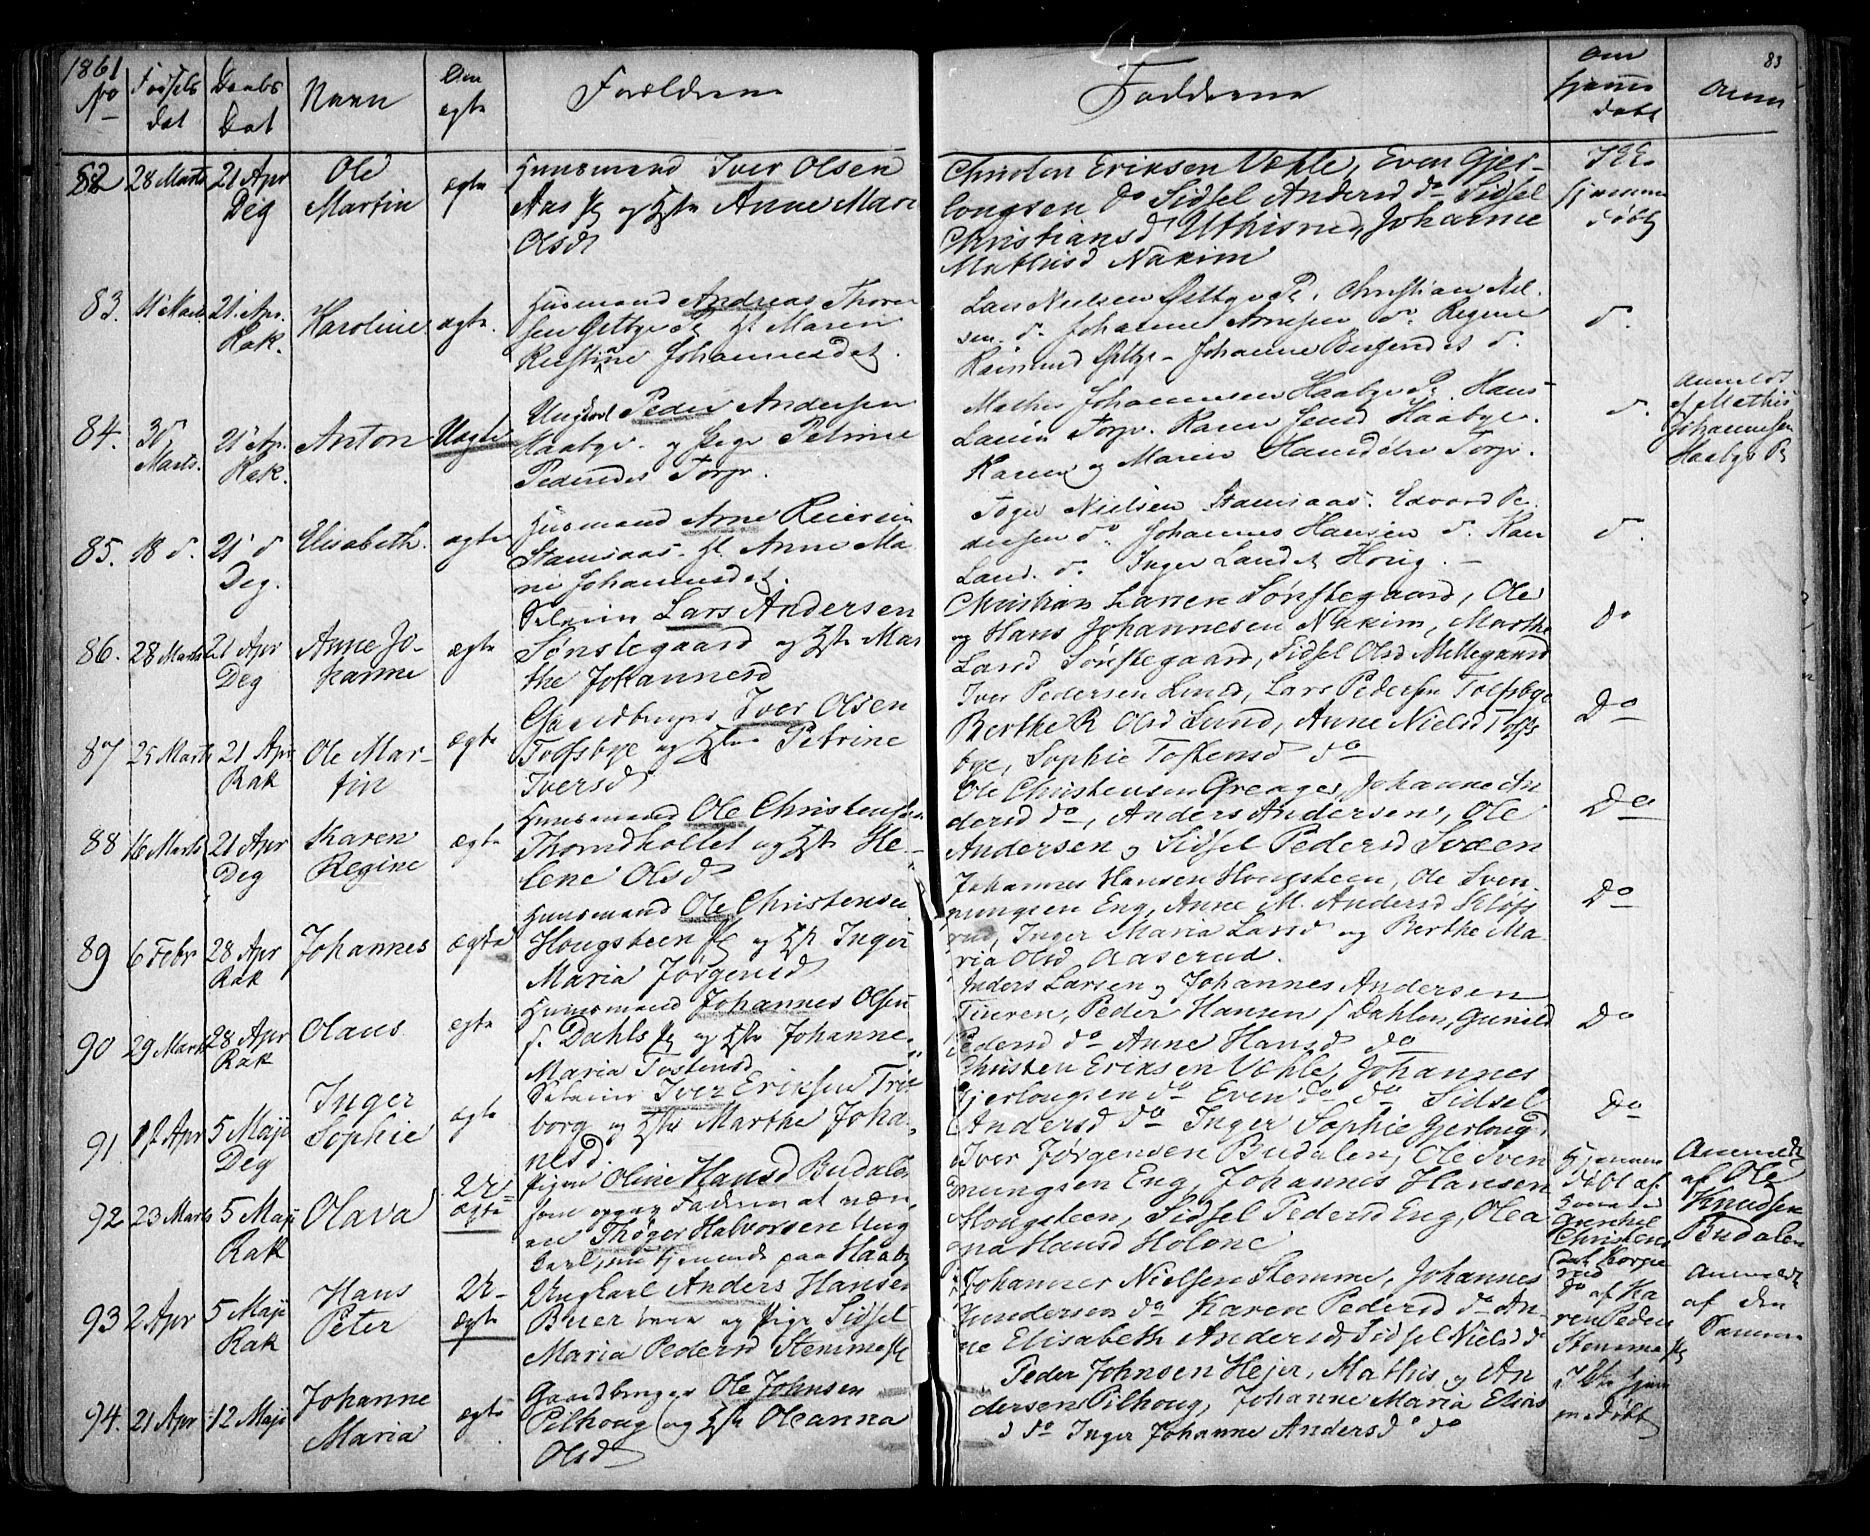 1861
83
No
Fødsels dat
Daabs Dat
Navn
Om ægte
Forældrene
Fadderne
Om hjemme døbt
Anm
82
28 Marts
21 Apr Deg
Ole Martin
ægte
Huusmand Iver Olsen
Aas og Hstr Anne Mari
Olsd
Christen Eriksen Væhle, Even Gjer-
lougsen do Sidsel Andersd do Sidsel
Christiansd Uthisrud, Johanne
Mathisd Nakim
hjemme døbt
83.
21 Apr. Rak.
Karoline
ægte.
Husmand Andreas Thore
sen
Maren
Kirstine Johannesdat.
Lars Nielsen Christian Nil
sen. do. Johanne Arnesen do. Regine
do.
84.
30 Marts.
21 Apr. Rak.
Anton
Uægte
Ungkarl Peder Andersen
Haabye. og Pige Petrine
Pedersdt Torp.
Mathis Johannesen Haabye Hans
Larsen Torp. Karen Haabye.
Karen og Maren Torp.
do.
Anmeldt af Mathis Johannesen Haabye
85.
18 d.
21 d Deg.
Elisabeth.
ægte
Husmand Arne Reiersen
Stamsaas. Anne Ma
rie Johannesdat.
Nielsen Stamsaas. Edvard Pe
dersen do. Johannes Hansen do. Kari
Larsd. do. Inger Larsdt Houg.
do.
86.
28 Marts
21 Apr Deg
Anne Jo-
hanne
ægte
Selveier Lars Andersen
Sønstegaard og Hstr Mar
the Johannesd
Christian Larsen Sønstegaard, Ole
og Hans Johannesen Nakim, Marthe
Larsd Sønstegaard, Sidsel Olsd Millegaard
Do
87
25 Marts
21 Apr Rak
Ole Mar-
tin
ægte
Gaardbruger Iver Olsen
Tofsbye og Hstr Petrine
Iversd
Iver Pedersen Lund, Lars Pedersen Tofsbye
Berthe R Olsd Lund, Anne Nielsd Tofs
bye, Sophie Tostensd do
Do
88
16 Marts
21 Apr Deg
Karen Regine
ægte
Huusmand Ole Christensen
Thorndhollet og Hstr He-
lene Olsd
Ole Christensen Greager, Johanne An
dersd do, Anders Andersen, Ole
Andersen og Sidsel Pedersd Svæen
Do
89
6 Febr
28 Apr Rak
Johannes
ægte
Huusmand Ole Christensen
Hougsteen og Hstr Inger
Maria Jørgensd
Johannes Hansen Hougsteen, Ole Sven
nungsen Eng, Anne M. Andersd Kløfs
rud, Inger Maria Larsd og Berthe Ma
ria Olsd Aaserud.
Do
90
29 Marts
28 Apr Rak
Olaus
ægte
Huusmand Johannes Olsen
s. Dahls og Hstr Johanne
Maria Tostensd
Anders Larsen og Johannes Andersen
Tiuren, Peder Hansen s Dahlen, Gunild
Pedersd do Anne Hansd do
Do
91
12 Apr
5 Maji Deg
Inger Sophie
ægte
Selveier Iver Eriksen Tri
borg og Hstr Marthe Joha
nesd
Christen Eriksen Væhle, Johannes
Gjerlougsen do Even do do Sidsel
Andersd do Inger Sophie Gjerlougsd
Do
92
23 Marts
5 Maji Rak
Olava
Uægte
Pigen Oline Hansd Budalen
som opgav Faderen at være
en Thøger Halvorsen Ung
karl, nu tjenende paa Haabye
Iver Jørgensen Budalen, Ole Sven
nungsen Eng, Johannes Hansen
Hougsteen, Sidsel Pedersd Eng, Olea
na Hansd Holone
Hjemme døbt af Gunhil Christensd
Anmeldt af Ole Knudsen Budalen
93
2 Apr
5 Maji Rak
Hans Peter
U-
ægte
Ungkarl Anders Hansen
Buer og Pige Sidsel
Maria Pedersd Stemme
Johannes Nielsen Stemme, Johannes
Gundersen do Karen Pedersd do An
ne Elisabeth Andersd, Sidsel Nielsd do
Do af Ka
ren Peders
Stemme
Anmeldt af den Samme
94.
21 Apr
12 Maji
Johanne Maria
ægte
Gaardbruger Ole Johnsen
Pilhoug og Hstr Oleanna
Olsd
Peder Johnsen Hejer, Mathis og An
dersen Pilhoug, Johanne Maria Elias
d do Inger Johanne Andersd do
Ikke hjem
me døbt